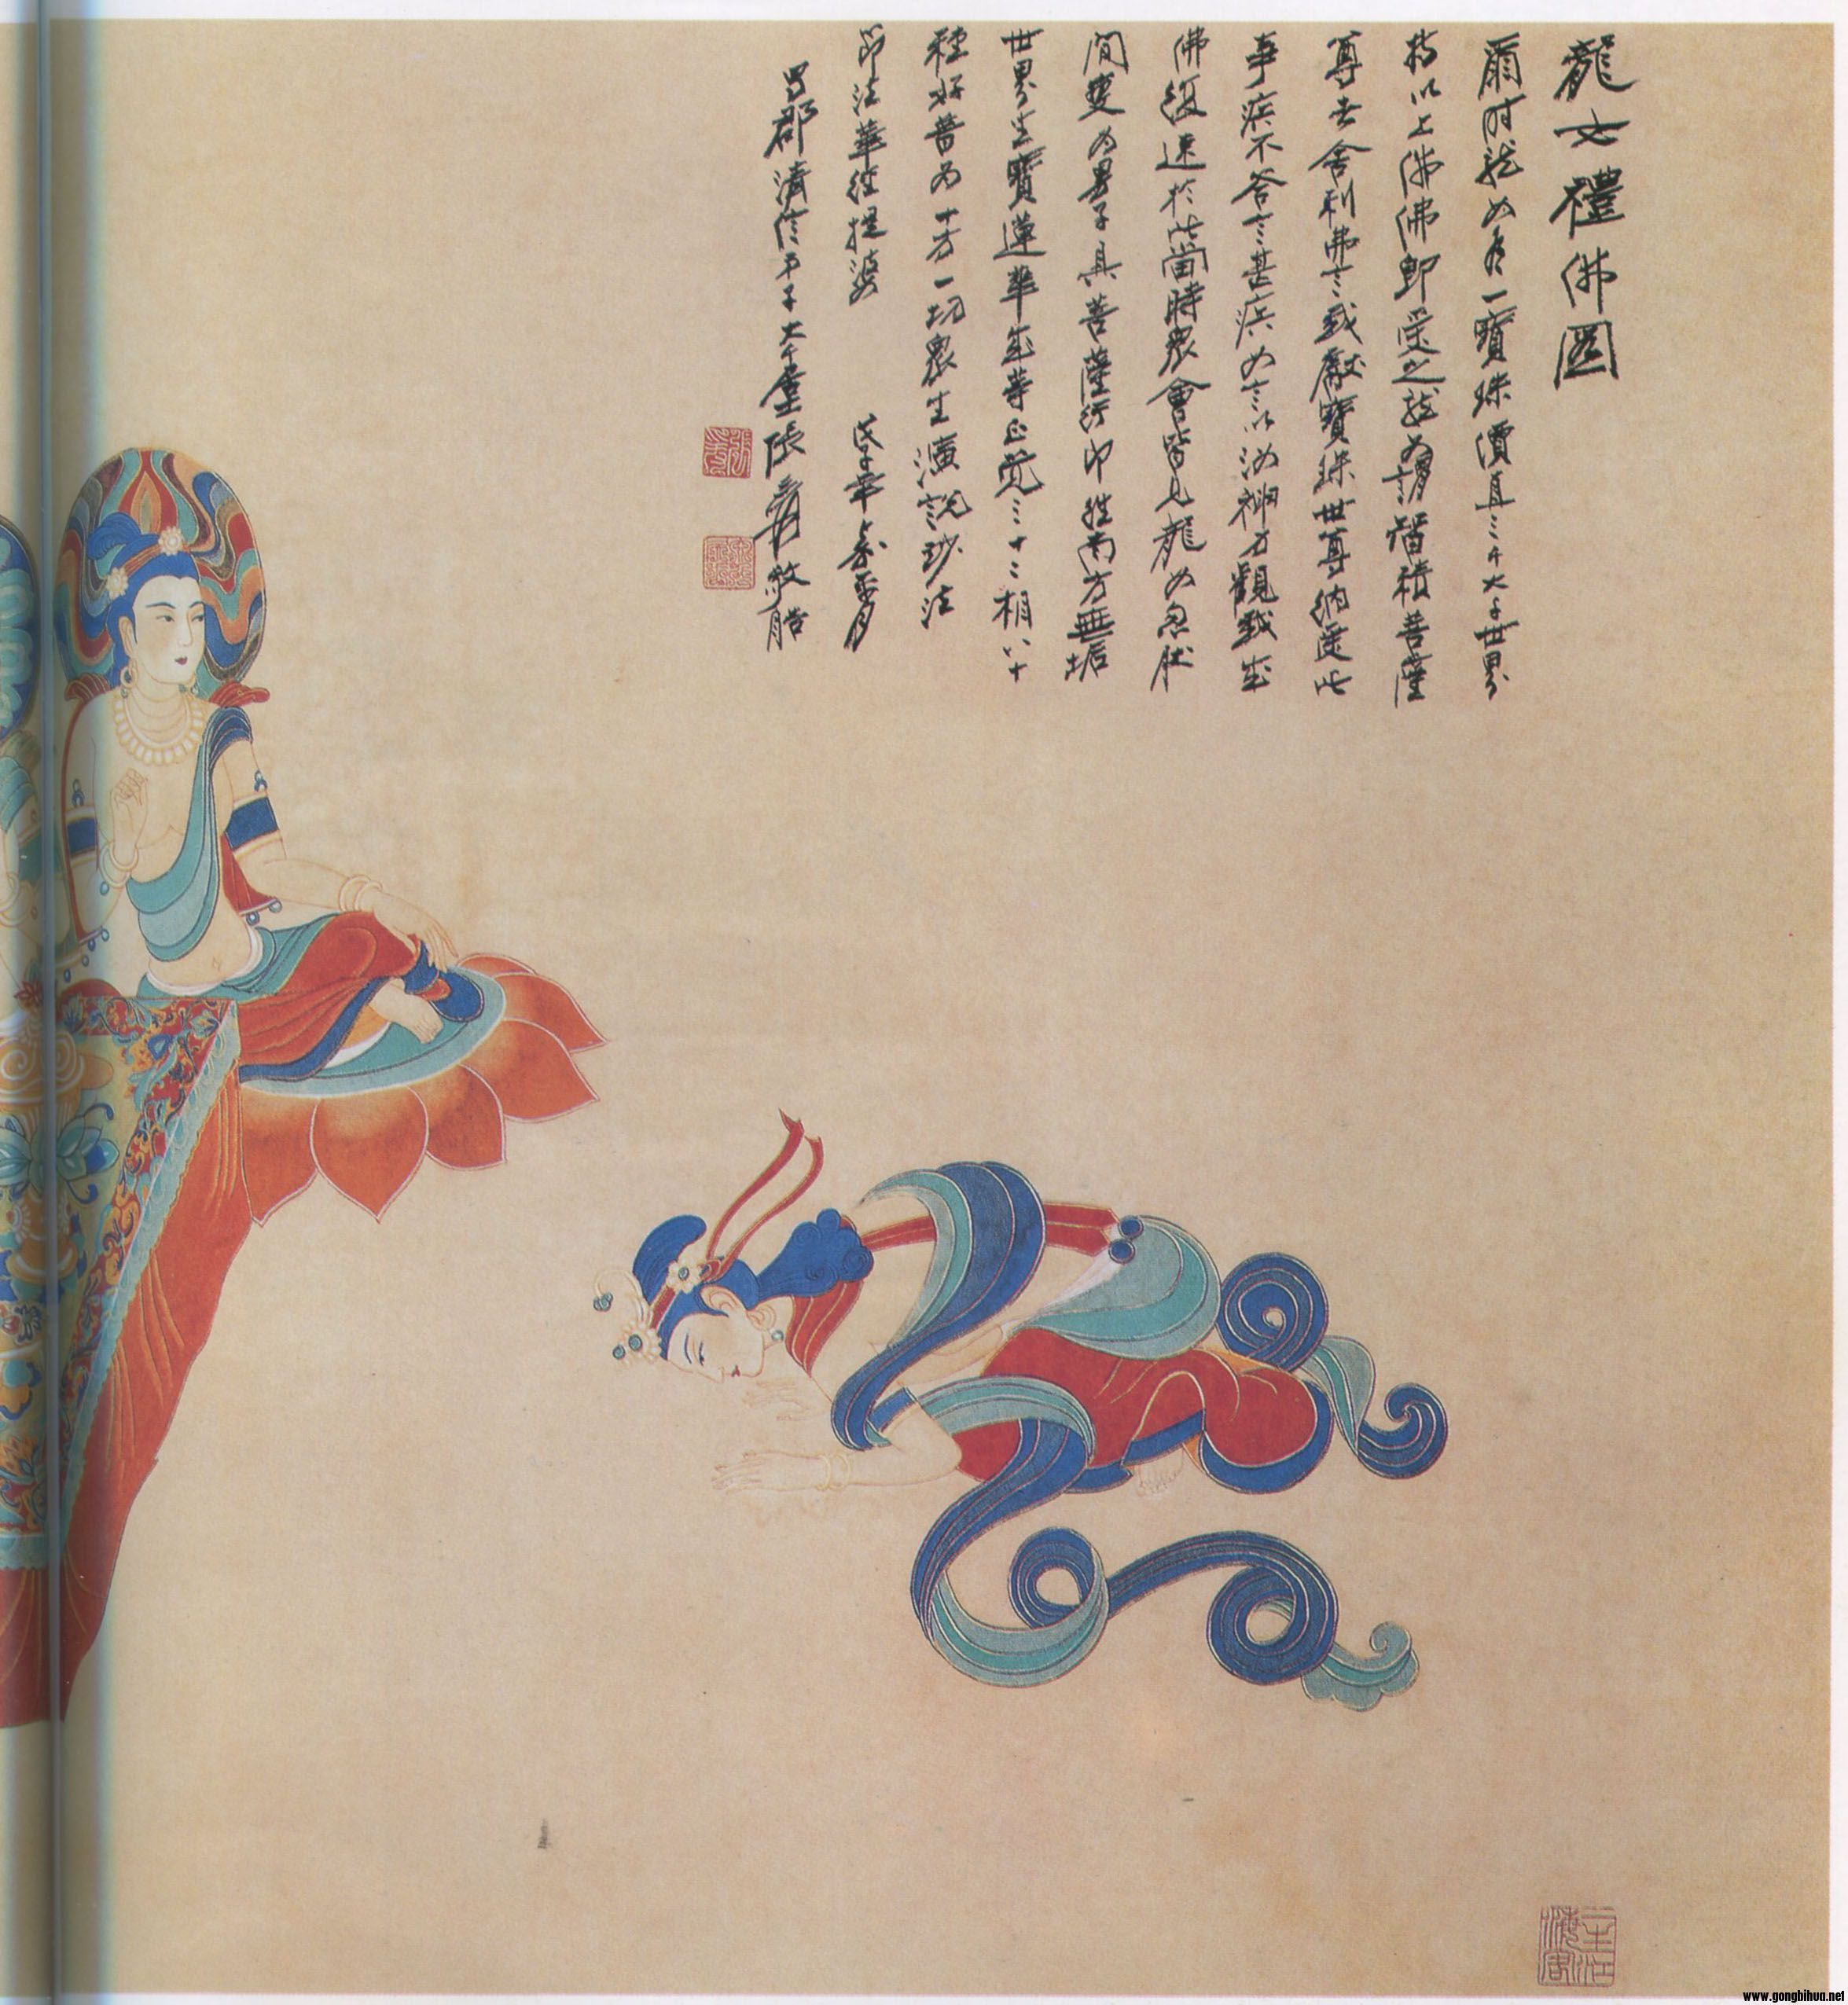 龍女禮佛圖
爾時龍女有一寶珠價直三千大千世界
持以上佛佛即受之龍女謂智積菩薩
尊者舍利弗言我獻寶珠世尊納受此
事疾不答言甚疾女言以汝神力觀我成
佛復速於此當時眾會皆見龍女忽然
間變為男子具菩薩行即往南方無垢
世界坐寶蓮華成等正覺三十二相八十
種好普為十方一切眾生演說妙法
節法華經提婆 戊子年嘉平月
蜀郡清信弟子大千居士張爰敬
www.gongbihua.net